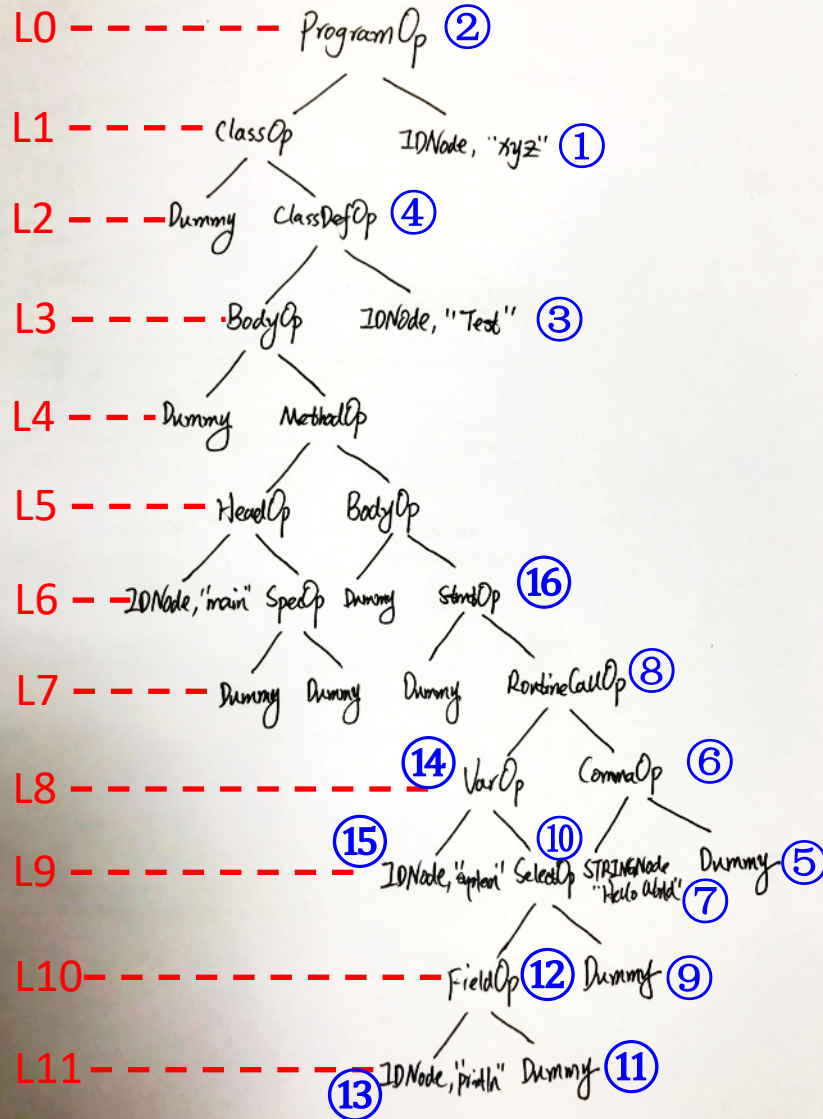 L0 ProgramOp ②
L1 ClassOp IDNode, "xyz" ①
L2 Dummy ClassDefOp ④
L3 BodyOp IDNode, "Test" ③
L4 Dummy MethodOp
L5 HeadOp BodyOp
L6 IDNode, "main" SpecOp Dummy StmtOp ⑯
L7 Dummy Dummy Dummy RoutineCallOp ⑧
L8 ⑭ VarOp CommaOp ⑥
L9 ⑮ IDNode, SelectOp ⑩ STRINGNode Dummy ⑤
"Hello World" ⑦
L10 FieldOp ⑫ Dummy ⑨
L11 ⑬ IDNode, "println" Dummy ⑪